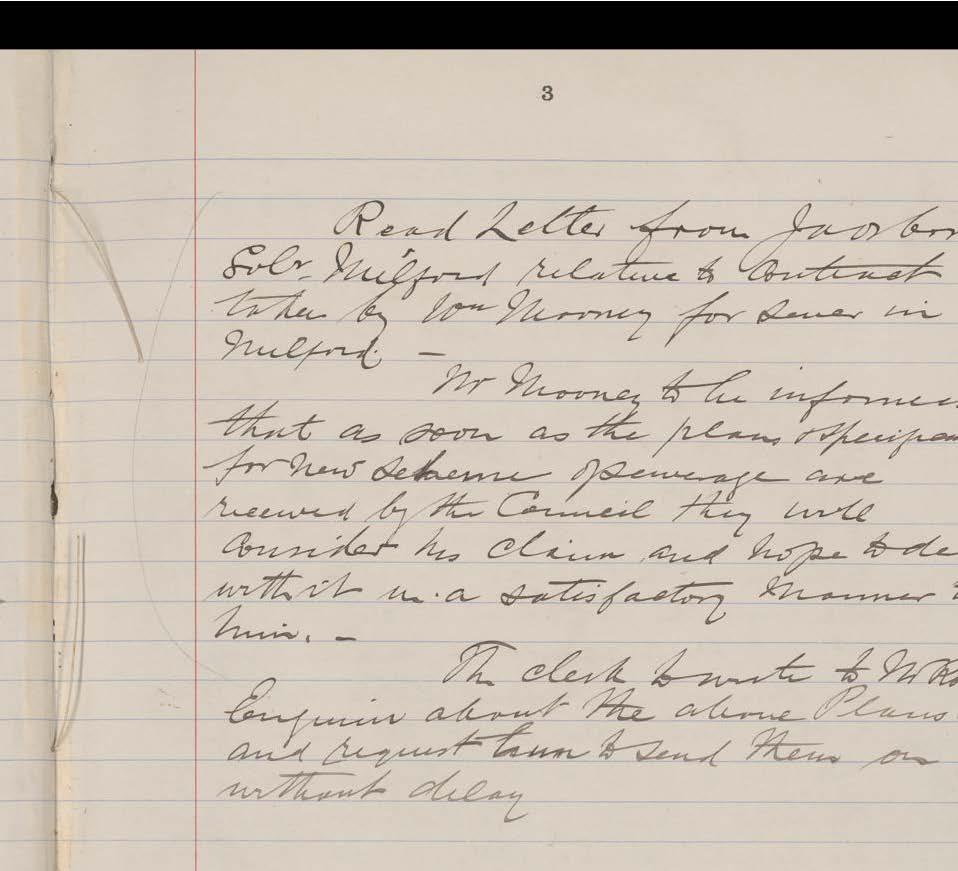 3
Read Letter from
Solr. Milford relative to Contract
taken by Wm Mooney for sewer in
Milford. —
Mr Mooney to be informed
that as soon as the plans & specifica
for new scheme of sewerage are
received by the Council they will
Consider his claim and hope to de
with it in a satisfactory Manner t
him. —
The clerk to write to Mr
Enginin about the above Plans
and request him to send them on
without delay